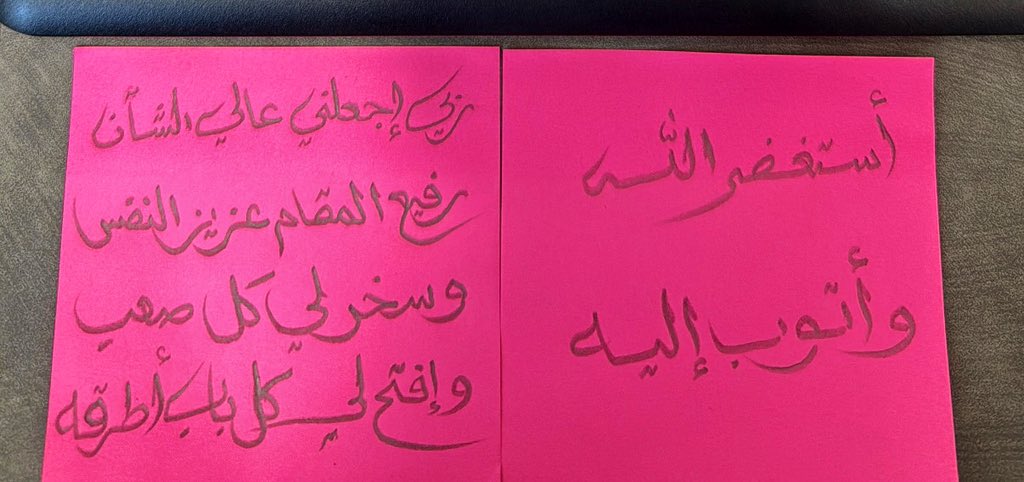 أستغفر اللّه
وأتوب إليه
ربي إجعلني عالي الشأن
رفيع المقام عزيز النفس
وسخر لي كل صعب
وإفتح لي كل باب أطرقه